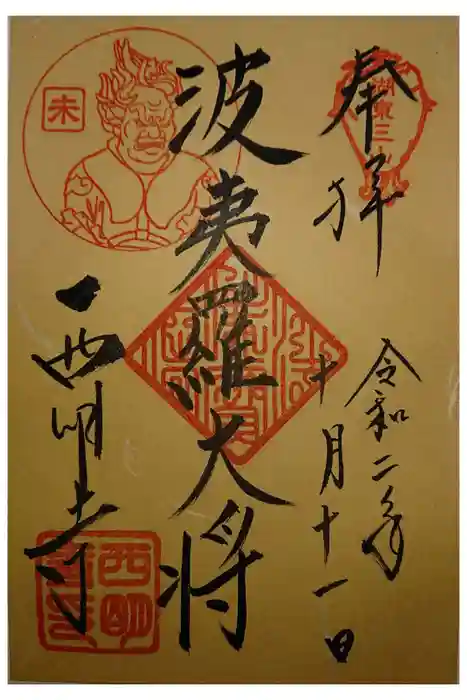 奉拝
湖東三山
令和二年
十月十一日
波夷羅大将
未
西明寺
西明